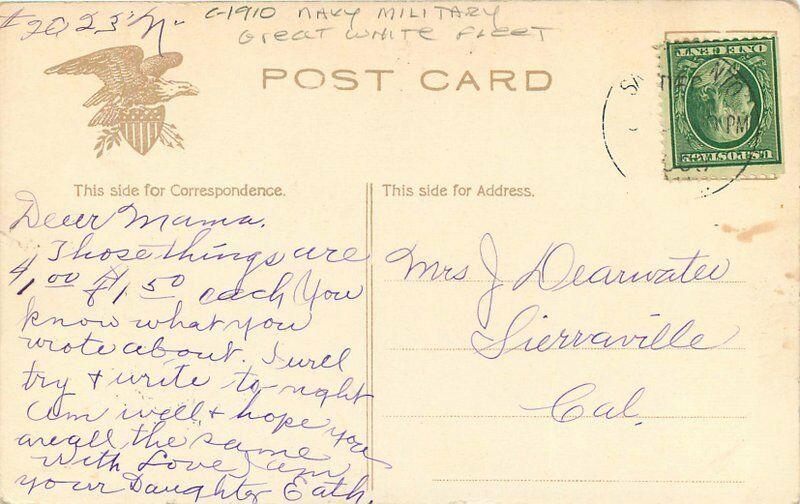 # 2023
C-1910 NAVY MILITARY
GREAT WHITE FLEET
POST CARD
ONE CENT
U.S. POSTAGE
PM
This side for Correspondence.
Dear Mama.
Those things are
$1.00 $1.50 each You
know what you
wrote about. I will
try & write to night
Am well & hope you
are all the same
With Love I am
your Daughter
This side for Address.
Mrs J Dearwater
Sierraville
Cal.